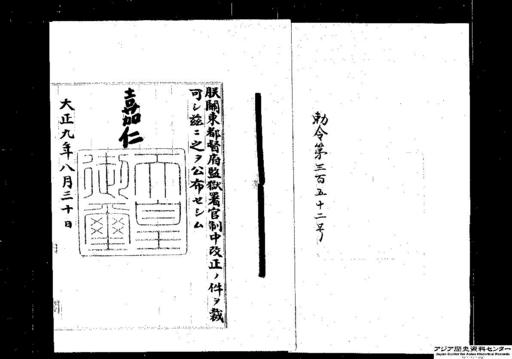 勅令第三百五十二号
朕關東都督府監獄署官制中改正ノ件ヲ裁
可シ茲ニ之ヲ公布セシム
嘉仁
天皇
御璽
大正九年八月三十日
アジア歴史資料センター
Japan Center for Asian Historical Records